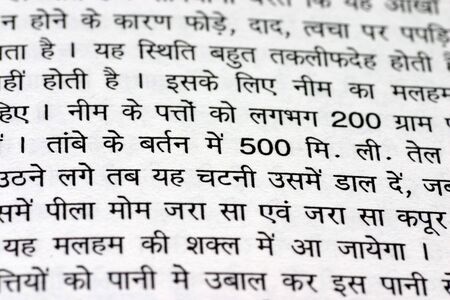 न होने के कारण फोड़े, दाद, त्वचा पर पपड़ि
ता है । यह स्थिति बहुत तकलीफदेह होती है
हीं होती है । इसके लिए नीम का मलहम
हिए । नीम के पत्तों को लगभग 200 ग्राम
। तांबे के बर्तन में 500 मि. ली. तेल
उठने लगे तब यह चटनी उसमें डाल दें, जब
समें पीला मोम जरा सा एवं जरा सा कपूर
यह मलहम की शक्ल में आ जायेगा ।
त्तियों को पानी मे उबाल कर इस पानी से